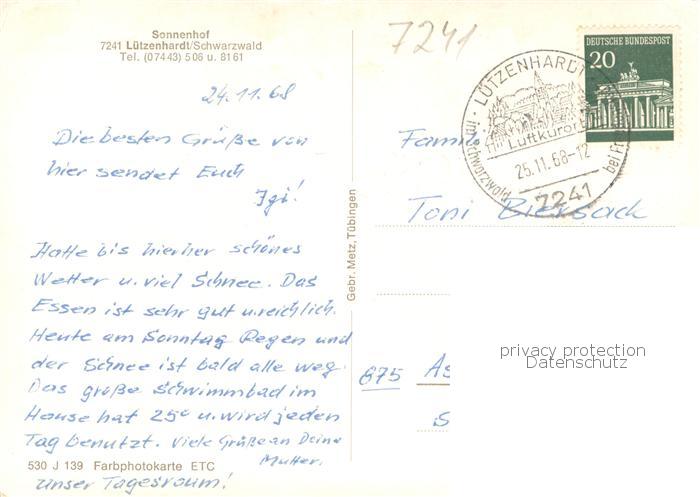 Sonnenhof
7241 Lützenhardt/Schwarzwald
Tel. (07443) 506 u. 8161
24.11.68
Die besten Grüße von
hier sendet Euch
Igi!
Hatte bis hierher schönes
Wetter u. viel Schnee. Das
Essen ist sehr gut u. reichlich.
Heute am Sonntag Regen und
der Schnee ist bald alle weg.
Das große Schwimmbad im
Hause hat 25° u. wird jeden
Tag benutzt. Viele Grüße an Deine
Mutter.
530 J 139 Farbphotokarte ETC
Unser Tagesraum!
Gebr. Metz, Tübingen
7241
DEUTSCHE BUNDESPOST
20
LÜTZENHARDT
Luftkurort
25.11.68-12
im Schwarzwald
bei
7241
Famil
Toni Biersack
675
As
S
privacy protection
Datenschutz